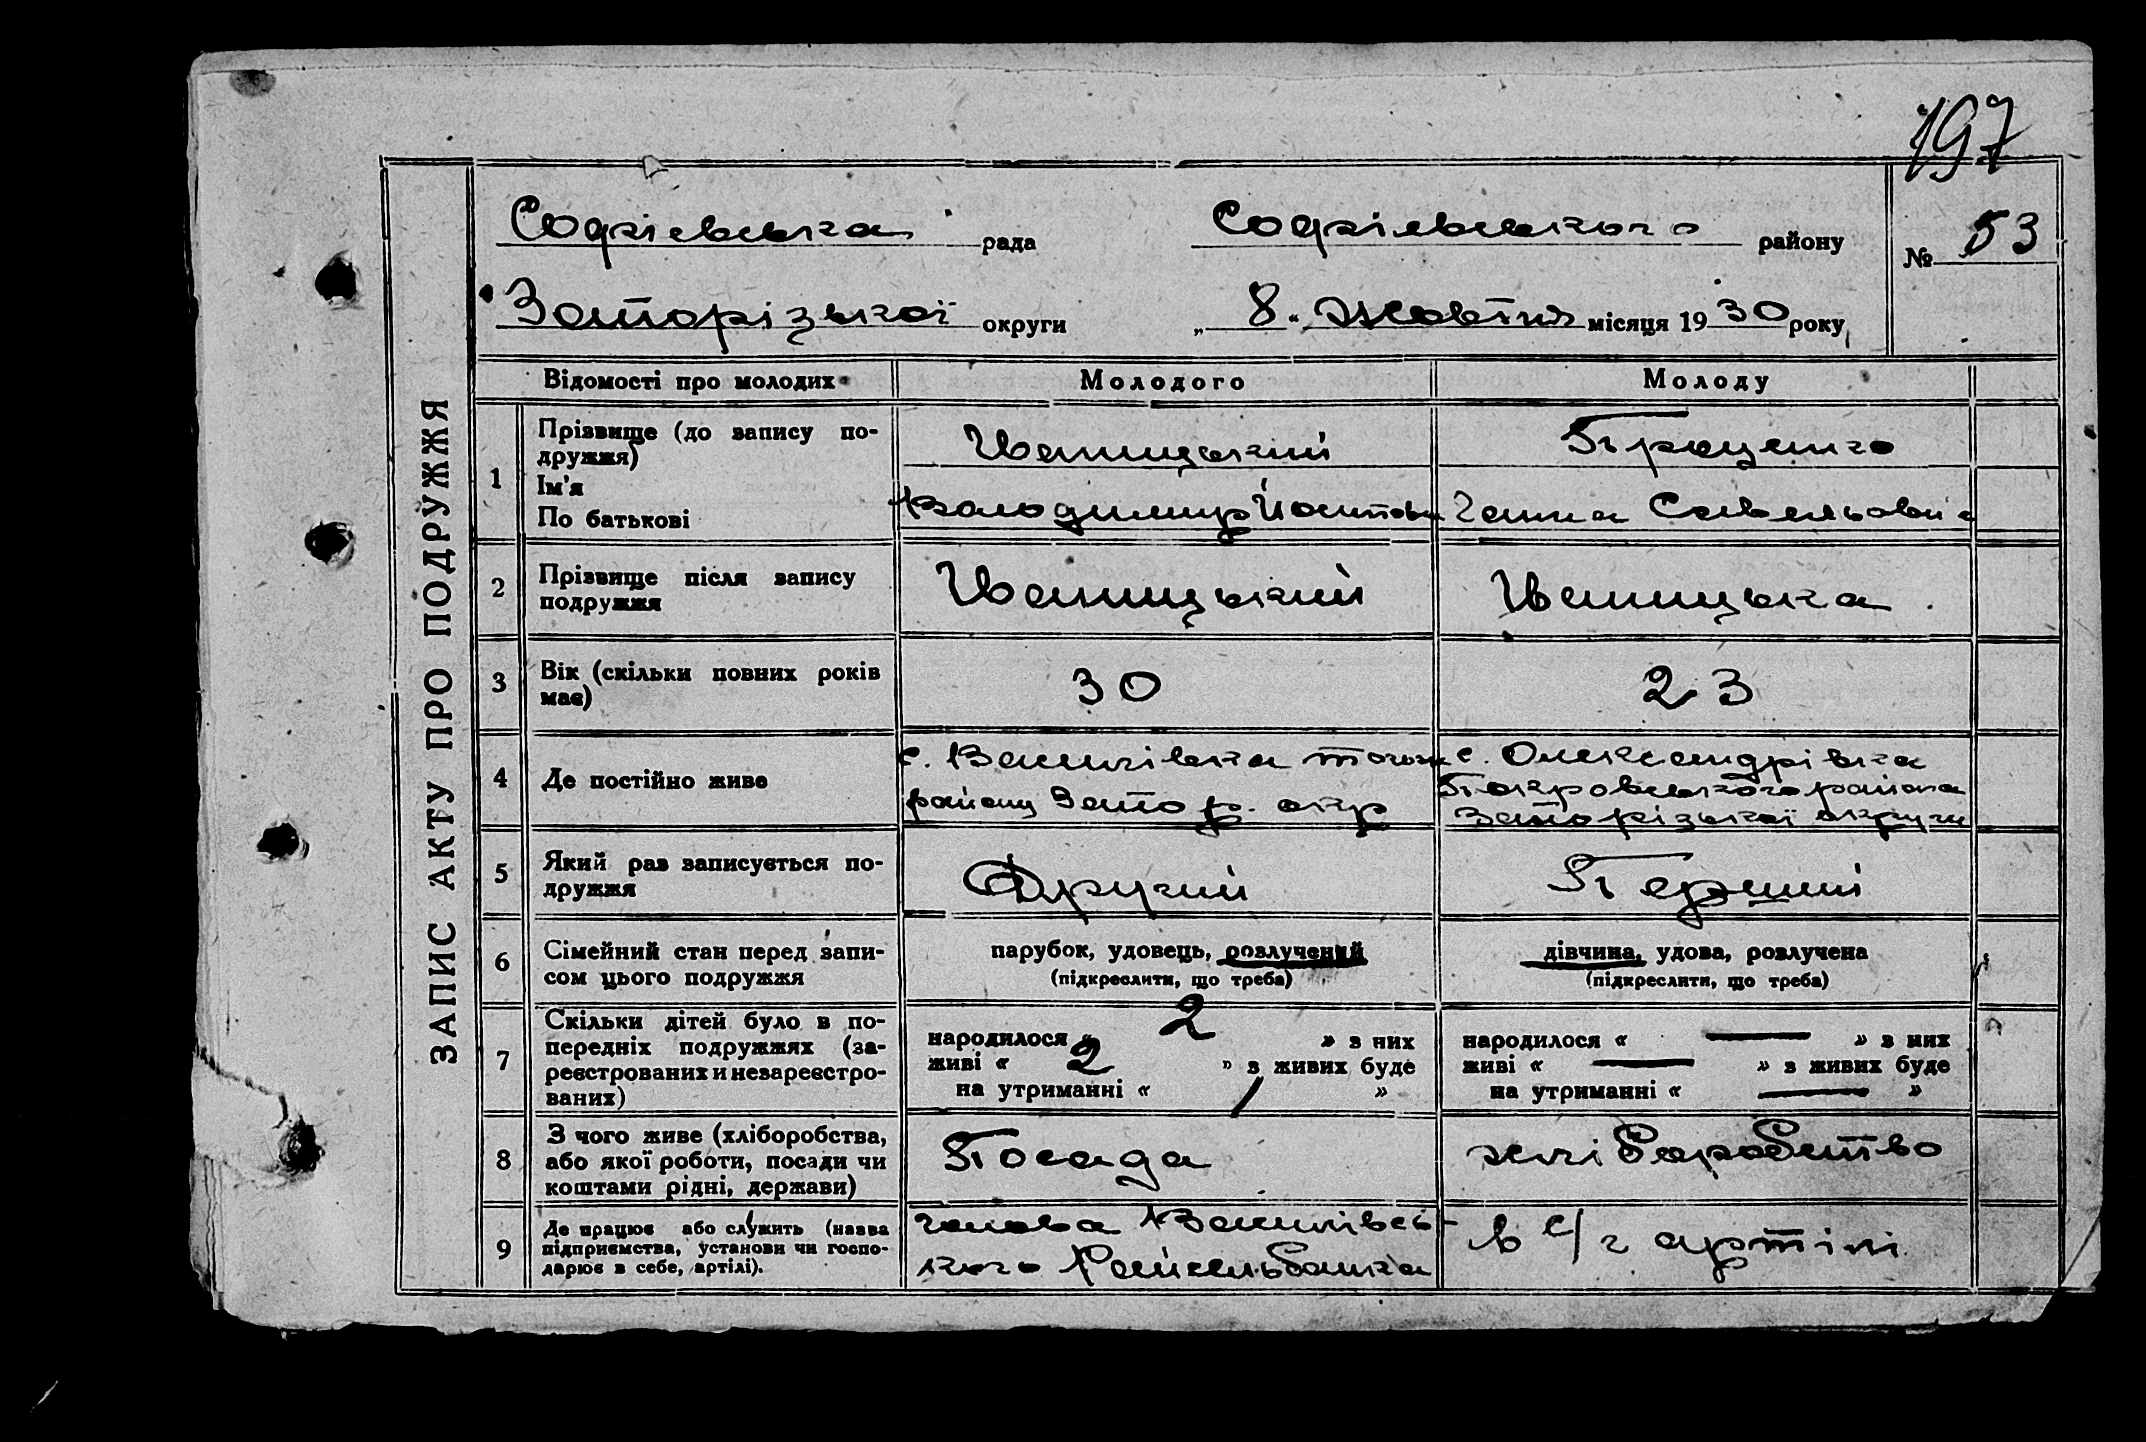 197
Софієвська рада Софієвського району № 53
Запорізької округи „ 8 “ жовтня місяця 1930 року
ЗАПИС АКТУ ПРО ПОДРУЖЖЯ
Відомості про молодих Молодого Молоду
1 Прізвище (до запису по-
дружжя) Іваницький Проценко
Ім'я
По батькові Володимир Ганна Савельовна
2 Прізвище після запису
подружжя Іваницький Іваницька
3 Вік (скільки повних років
має) 30 23
4 Де постійно живе
с. Василівка того ж
району Запор. окр
с. Олександрівка
Покровського района
Запорізької округи
5 Який раз записується по-
дружжя Другий Перший
6 Сімейний стан перед запи-
сом цього подружжя
парубок, удовець, розлучений
(підкреслити, що треба)
дівчина, удова, розлучена
(підкреслити, що треба)
7 Скільки дітей було в по-
передніх подружжях (за-
реєстрованих и незареєстро-
ваних)
народилося « 2 » з них
живі « 2 » з живих буде
на утриманні « 1 »
народилося « — » з них
живі « — » з живих буде
на утриманні « — »
8 З чого живе (хліборобства,
або якої роботи, посади чи
коштами рідні, держави)
Посада
хліборобство
9 Де працює або служить (назва
підприємства, установи чи госпо-
дарює в себе, артілі).
голова Василівсь-
кого Райсельбанка
в с/г артілі